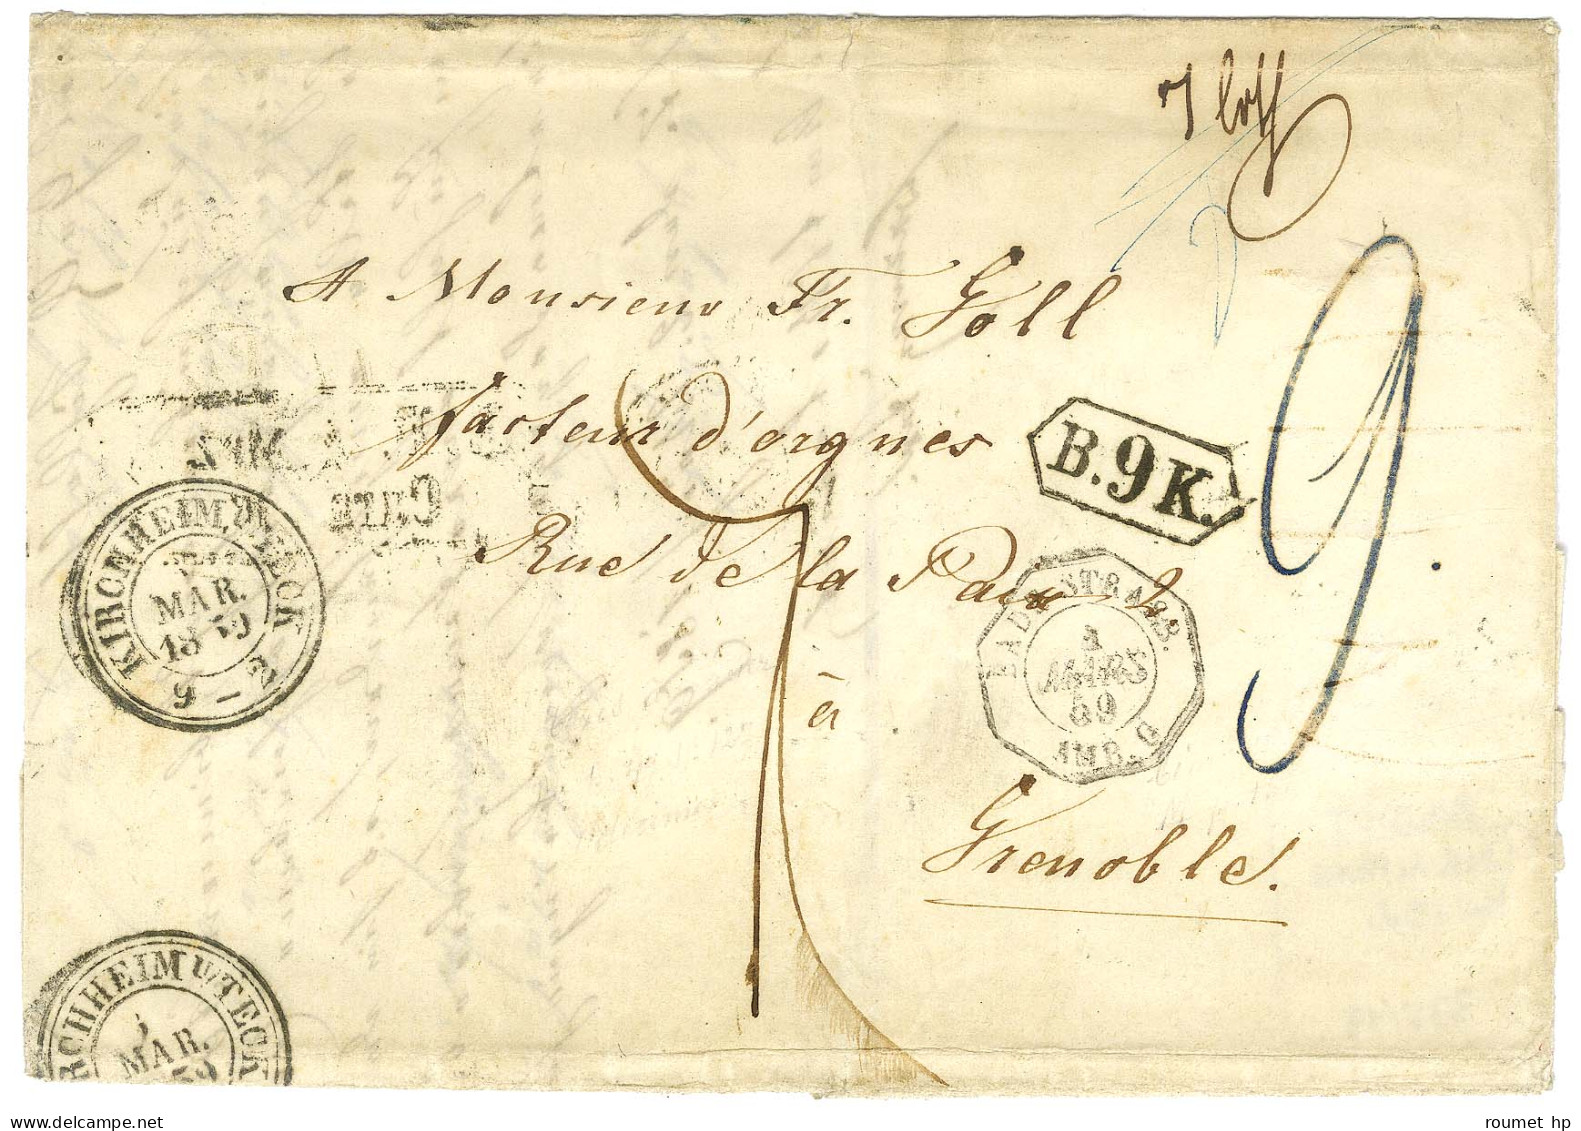 7 loth
A Monsieur Fr. Goll
facteur d'orgues
Rue de la Paix 2
à
Grenoble.
9
B.9K.
KIRCHHEIM U/TECK
MAR.
1859
9-2
BADE STRASB.
3
MARS
59
AMB. C
KIRCHHEIM U/TECK
3
MAR.
roumet hp